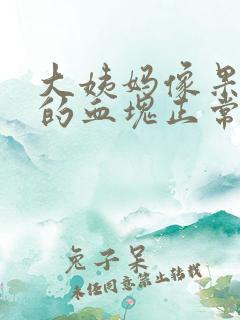 大姨妈像果
的血块正常
兔子呆
未经同意禁止转载